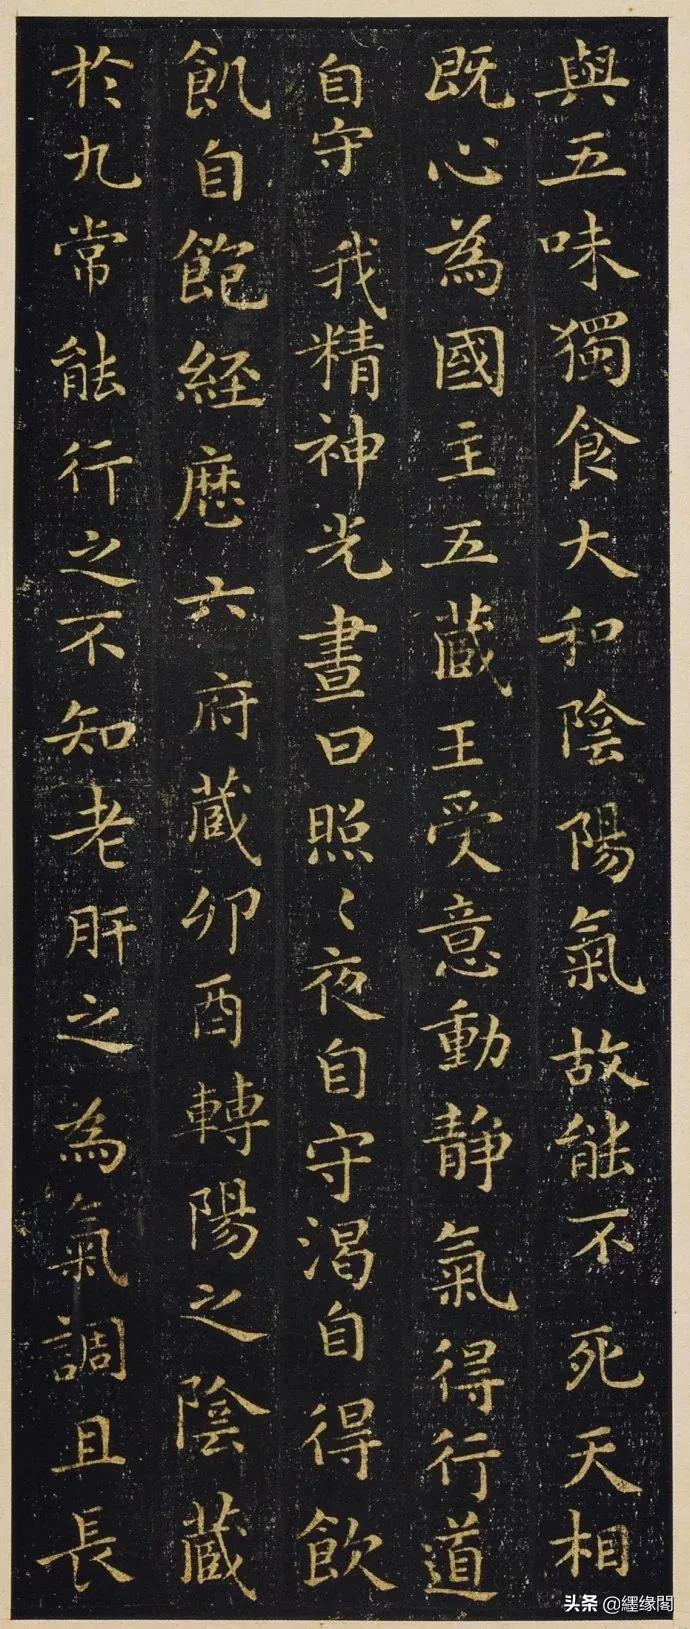 與五味獨食大和陰陽氣故能不死天相
既心為國主五藏王受意動静氣得行道
自守我精神光晝日照〻夜自守渴自得飲
飢自飽経歷六府藏卯酉轉陽之陰藏
於九常能行之不知老肝之為氣調且長
头条 @纆缘閣